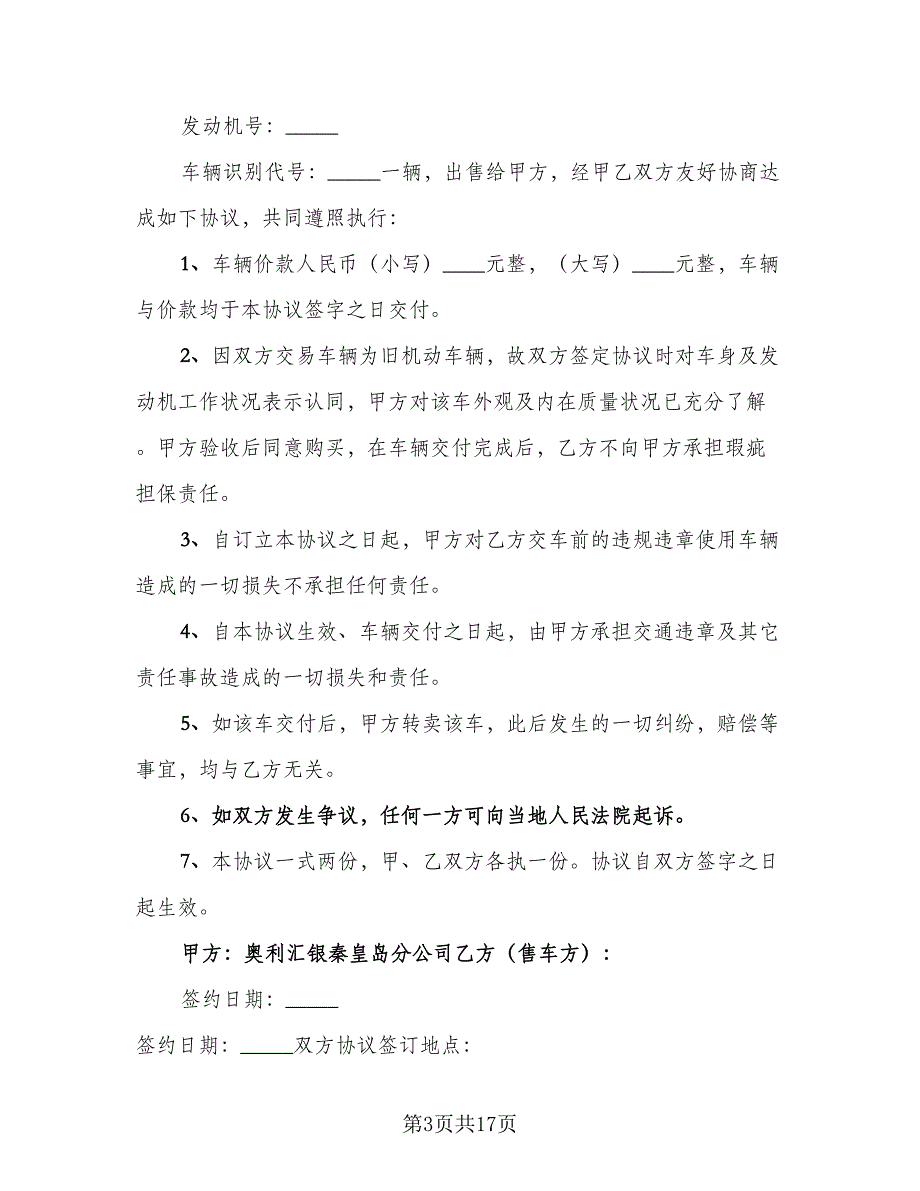 发动机号：_____
车辆识别代号：_____一辆，出售给甲方，经甲乙双方友好协商达
成如下协议，共同遵照执行：
1、车辆价款人民币（小写）____元整，（大写）____元整，车辆
与价款均于本协议签字之日交付。
2、因双方交易车辆为旧机动车辆，故双方签定协议时对车身及发
动机工作状况表示认同，甲方对该车外观及内在质量状况已充分了解
。甲方验收后同意购买，在车辆交付完成后，乙方不向甲方承担瑕疵
担保责任。
3、自订立本协议之日起，甲方对乙方交车前的违规违章使用车辆
造成的一切损失不承担任何责任。
4、自本协议生效、车辆交付之日起，由甲方承担交通违章及其它
责任事故造成的一切损失和责任。
5、如该车交付后，甲方转卖该车，此后发生的一切纠纷，赔偿等
事宜，均与乙方无关。
6、如双方发生争议，任何一方可向当地人民法院起诉。
7、本协议一式两份，甲、乙双方各执一份。协议自双方签字之日
起生效。
甲方：奥利汇银秦皇岛分公司乙方（售车方）：
签约日期：_____
签约日期：_____双方协议签订地点：
第3页共17页